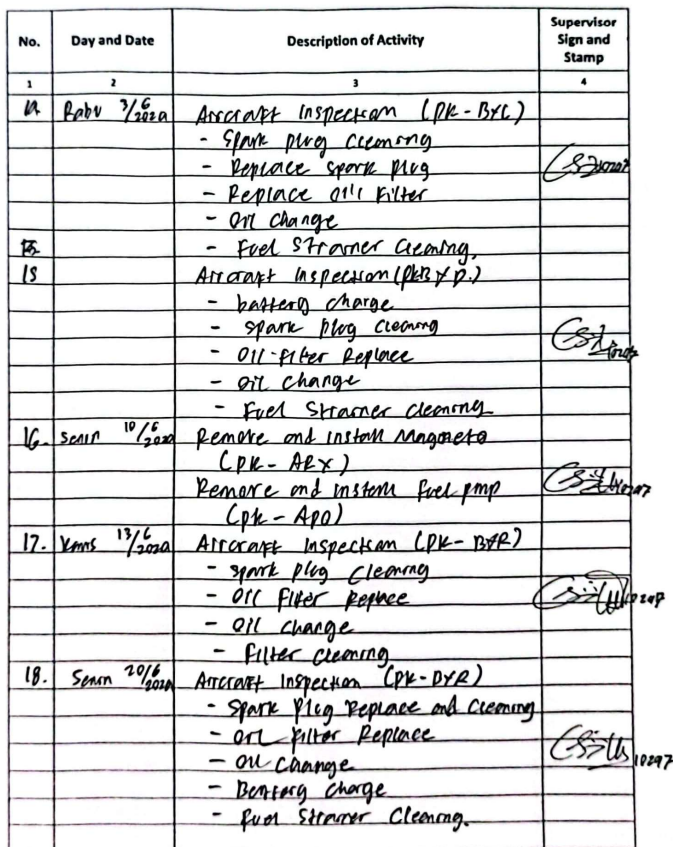 No. Day and Date Description of Activity Supervisor Sign and Stamp
1 2 3 4
Rabu 3/6 Aircraft Inspection (PK-BYC)
- Spark plug Cleaning
- Replace spark plug
- Replace Oil Filter
- Oil Change
- Fuel Strainer Cleaning.
15 Aircraft Inspection (PKBYD.)
- battery charge
- spark plug cleaning
- Oil-filter Replace
- Oil change
- Fuel Strainer cleaning
16. Senin 10/6 Remove and install Magneto
(PK-AEX)
Remove and install fuel pmp
(PK-APO)
17. Kamis 13/6 Aircraft Inspection
- spark plug Cleaning
- Oil Filter Replace
- Oil change
- Filter cleaning
18. Senin 20/6 Aircraft Inspection
- Spark Plug Replace and Cleaning
- Oil Filter Replace
- Oil Change 10297
- Battery Charge
- Fuel Strainer Cleaning.